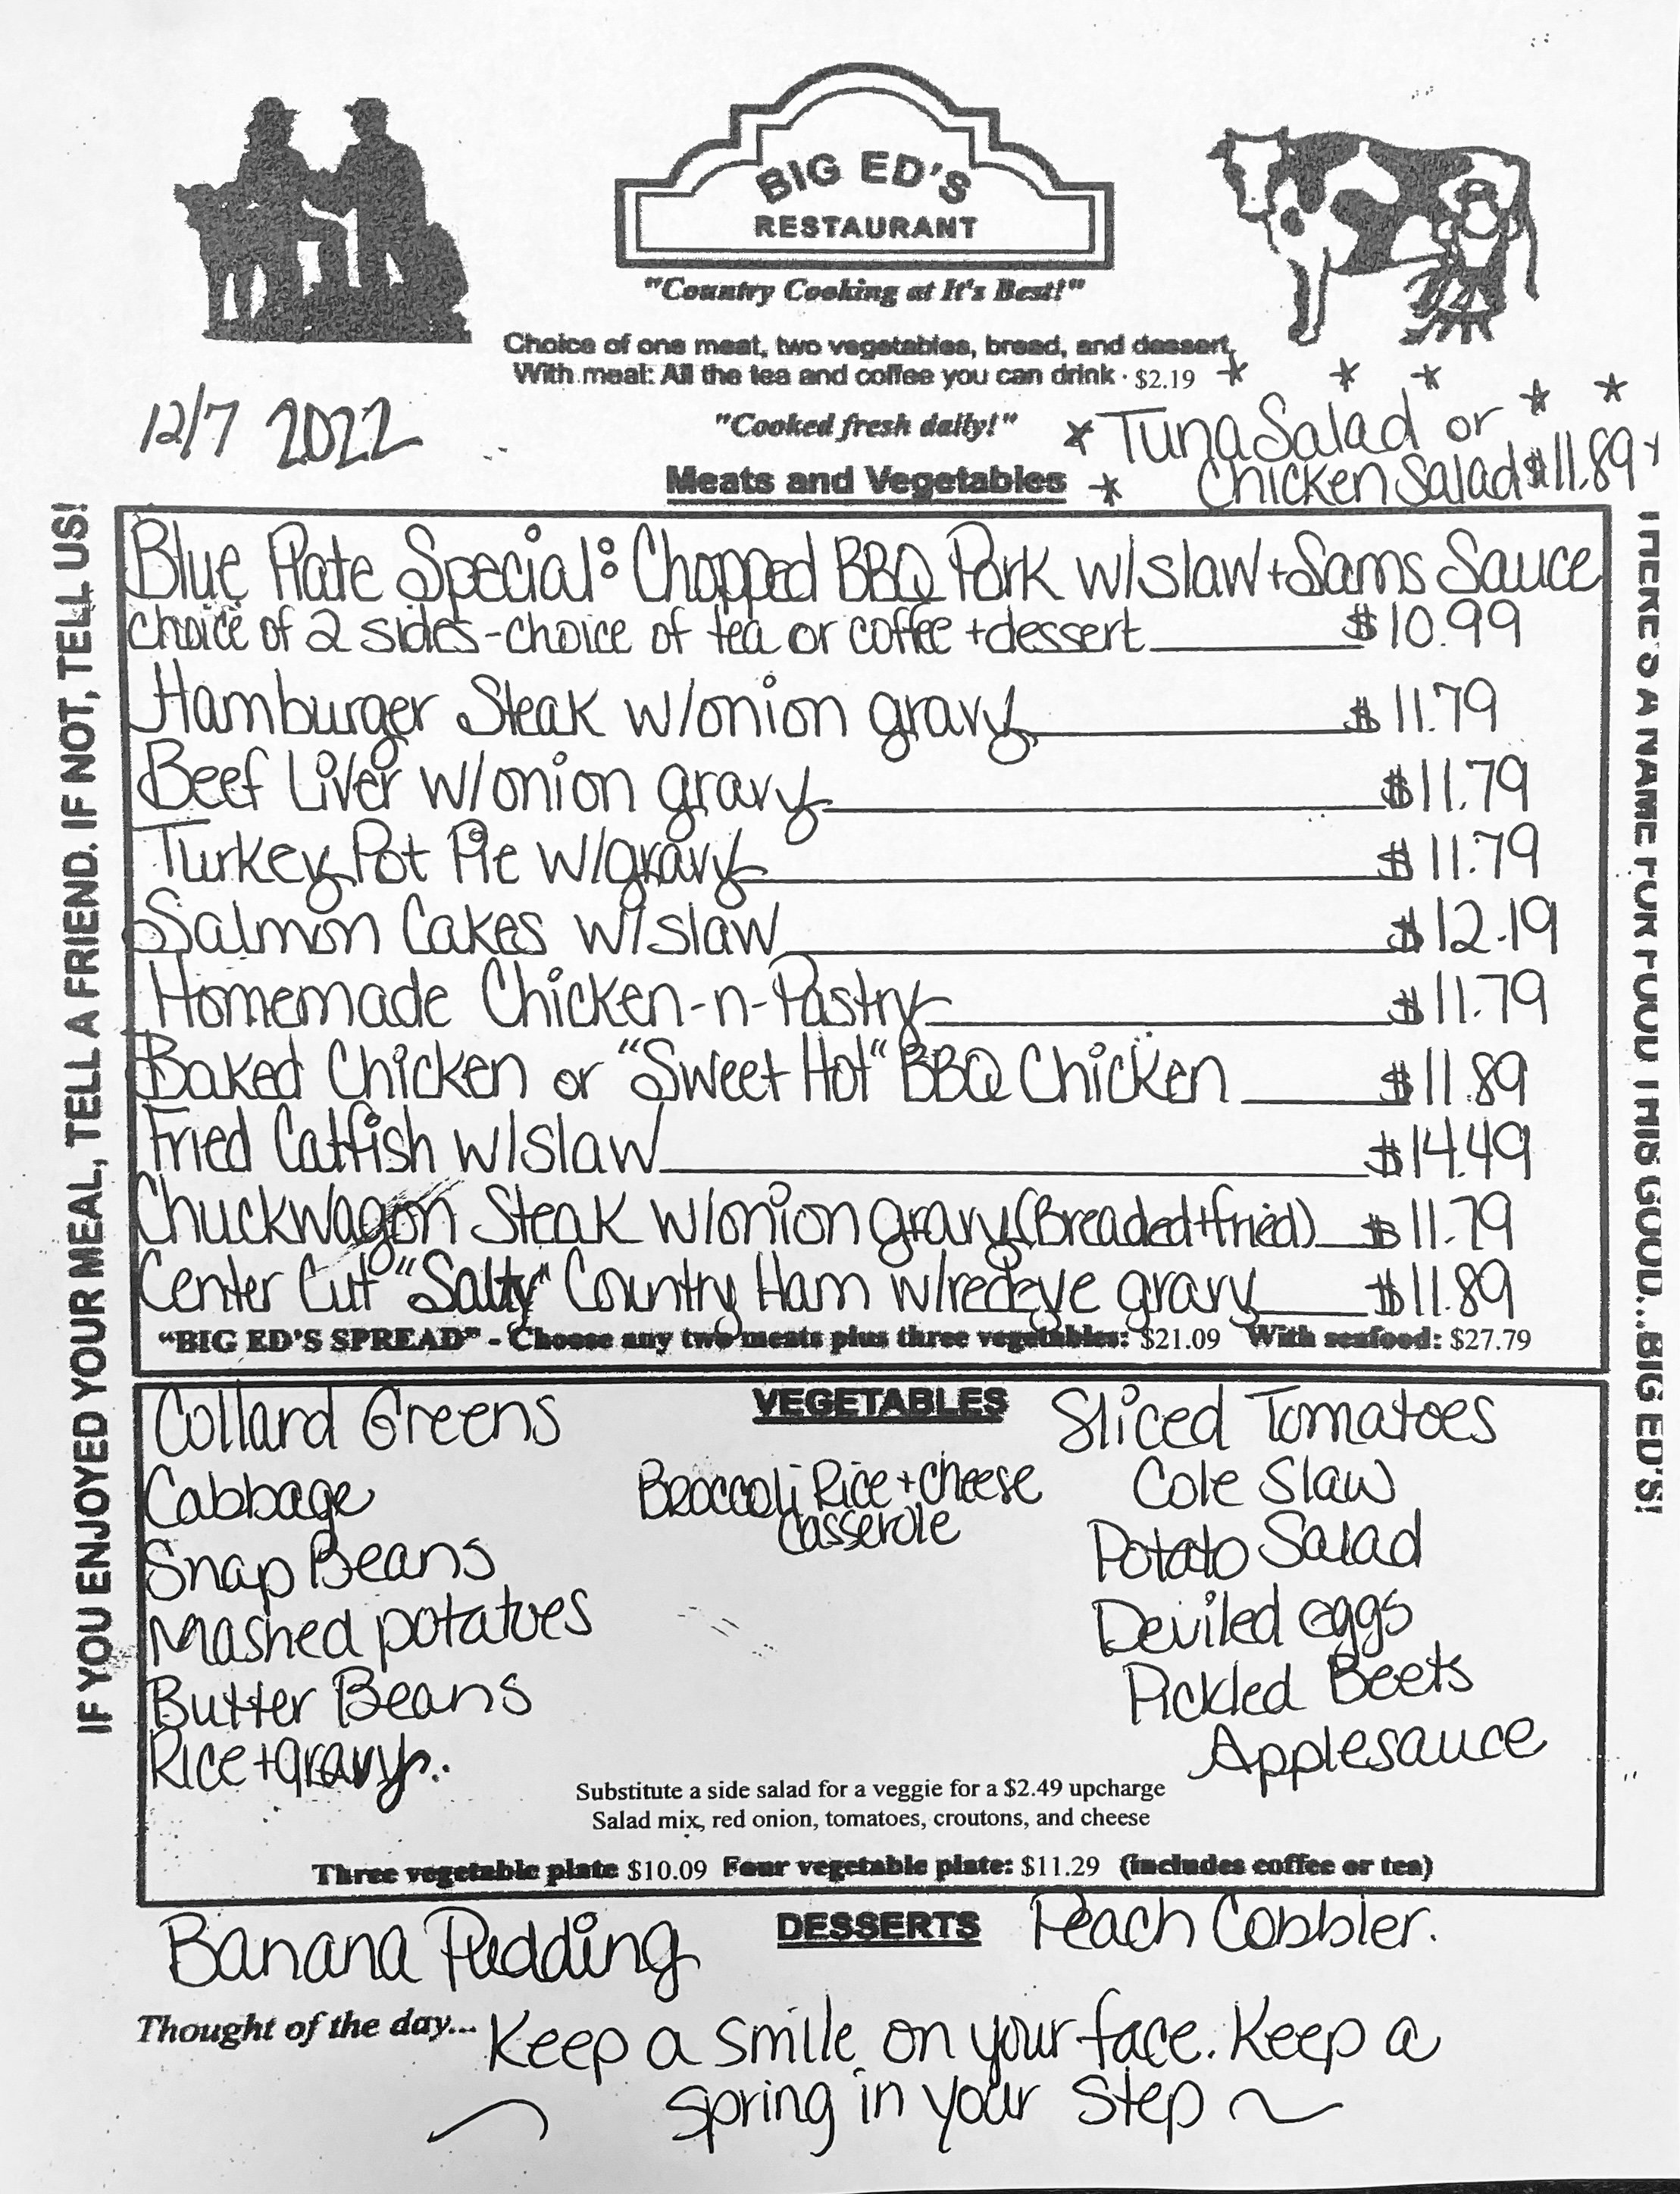 BIG ED'S
RESTAURANT
"Country Cooking at It's Best!"
Choice of one meat, two vegetables, bread, and dessert
With meal: All the tea and coffee you can drink · $2.19
12/7 2022
"Cooked fresh daily!"
* Tuna Salad or
Chicken Salad $11.89
Meats and Vegetables
IF YOU ENJOYED YOUR MEAL, TELL A FRIEND. IF NOT, TELL US!
Blue Plate Special: Chopped BBQ Pork w/slaw + Sams Sauce
choice of 2 sides - choice of tea or coffee + dessert $10.99
Hamburger Steak w/onion gravy $11.79
Beef Liver w/onion gravy $11.79
Turkey Pot Pie w/gravy $11.79
Salmon Cakes w/slaw $12.19
Homemade Chicken-n-Pastry $11.79
Baked Chicken or "Sweet Hot" BBQ Chicken $11.89
Fried Catfish w/slaw $14.49
Chuckwagon Steak w/onion gravy (Breaded+fried) $11.79
Center Cut "Salty" Country Ham w/redeye gravy $11.89
"BIG ED'S SPREAD" - Choose any two meats plus three vegetables: $21.09 With seafood: $27.79
THERE'S A NAME FOR FOOD THIS GOOD...BIG ED'S!
VEGETABLES
Collard Greens
Cabbage
Snap Beans
Mashed potatoes
Butter Beans
Rice + gravy
Broccoli Rice + cheese
casserole
Sliced Tomatoes
Cole Slaw
Potato Salad
Deviled eggs
Pickled Beets
Applesauce
Substitute a side salad for a veggie for a $2.49 upcharge
Salad mix, red onion, tomatoes, croutons, and cheese
Three vegetable plate $10.09 Four vegetable plate: $11.29 (includes coffee or tea)
DESSERTS
Banana Pudding
Peach Cobbler.
Thought of the day... Keep a smile on your face. Keep a
spring in your step ~